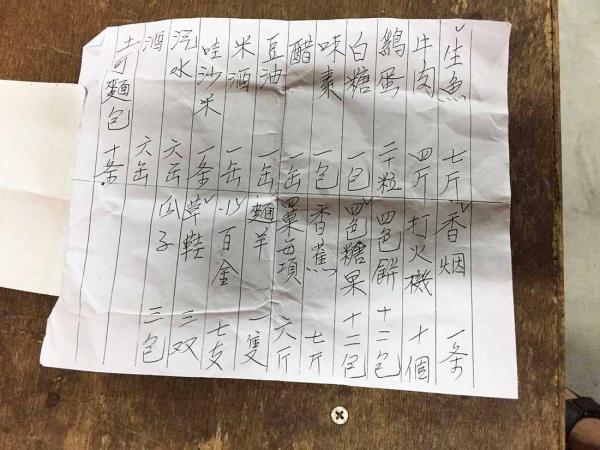 生魚 七斤 香烟 一条
牛肉 四斤 打火機 十個
鷄蛋 二十粒 四色餅 十二包
白糖 一包 四色糖果 十二包
味素 一包 香蕉 七斤
醋 一缶 四菓每項 六斤
豆油 一缶 麵羊 一隻
米酒 一缶 小百金 七支
哇沙米 一条 草鞋 三双
汽水 六缶 瓜子 三包
酒 六缶
土可麵包 十条